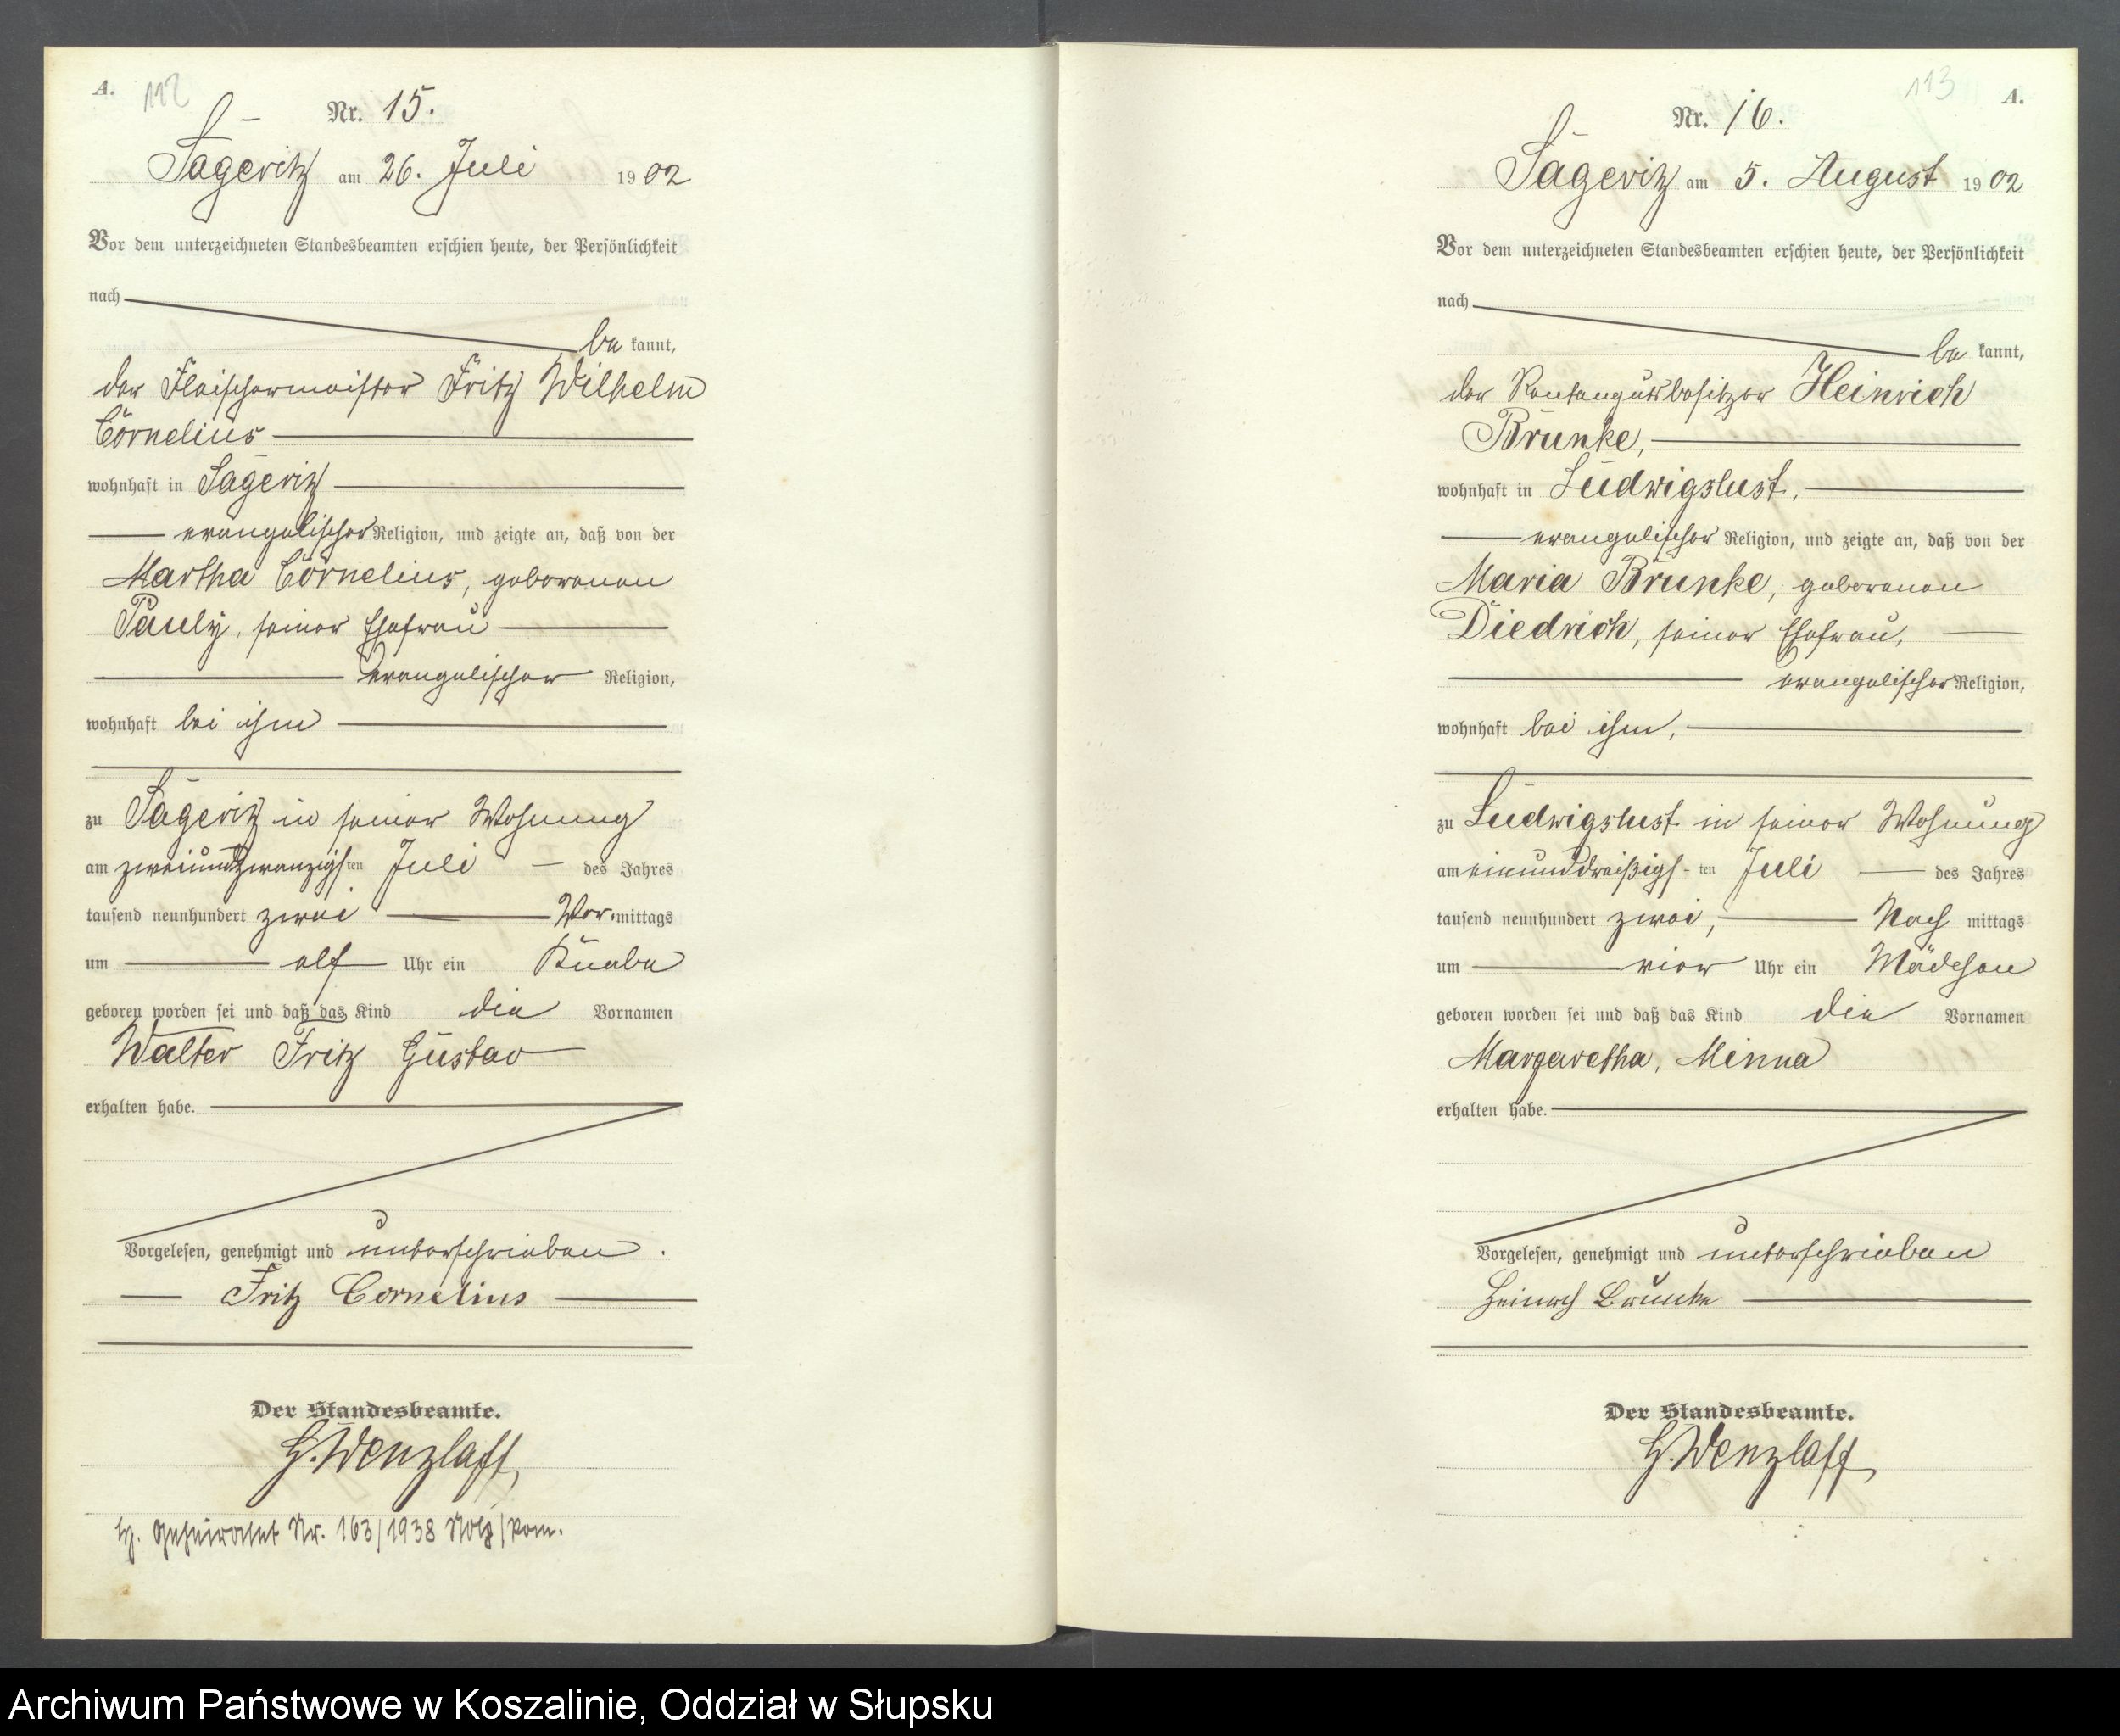 A.
112
Nr. 15.
Sageritz am 26. Juli 1902
Vor dem unterzeichneten Standesbeamten erschien heute, der Persönlichkeit
nach
be kannt,
der Fleischermeister Fritz Wilhelm
Cornelius
wohnhaft in Sageritz
evangelischer Religion, und zeigte an, daß von der
Martha Cornelius, geborenen
Pauly, seiner Ehefrau
evangelischer Religion,
wohnhaft bei ihm
zu Sageritz in seiner Wohnung
am zweiundzwanzigsten Juli des Jahres
tausend neunhundert zwei Vormittags
um elf Uhr ein Knabe
geboren worden sei und daß das Kind die Vornamen
Walter Fritz Gustav
erhalten habe.
Vorgelesen, genehmigt und unterschrieben.
Fritz Cornelius
Der Standesbeamte.
H. Wenzlaff
Geheiratet Nr. 163/1938 Stolp/Pom.
113
A.
Nr. 16.
Sageritz am 5. August 1902
Vor dem unterzeichneten Standesbeamten erschien heute, der Persönlichkeit
nach
be kannt,
der Rentengutsbesitzer Heinrich
Brunke,
wohnhaft in Ludwigslust,
evangelischer Religion, und zeigte an, daß von der
Maria Brunke, geborenen
Diedrich, seiner Ehefrau,
evangelischer Religion,
wohnhaft bei ihm,
zu Ludwigslust in seiner Wohnung
am einunddreißigsten Juli des Jahres
tausend neunhundert zwei, Nach mittags
um vier Uhr ein Mädchen
geboren worden sei und daß das Kind die Vornamen
Margaretha, Minna
erhalten habe.
Vorgelesen, genehmigt und unterschrieben
Heinrich Brunke
Der Standesbeamte.
H. Wenzlaff
Archiwum Państwowe w Koszalinie, Oddział w Słupsku